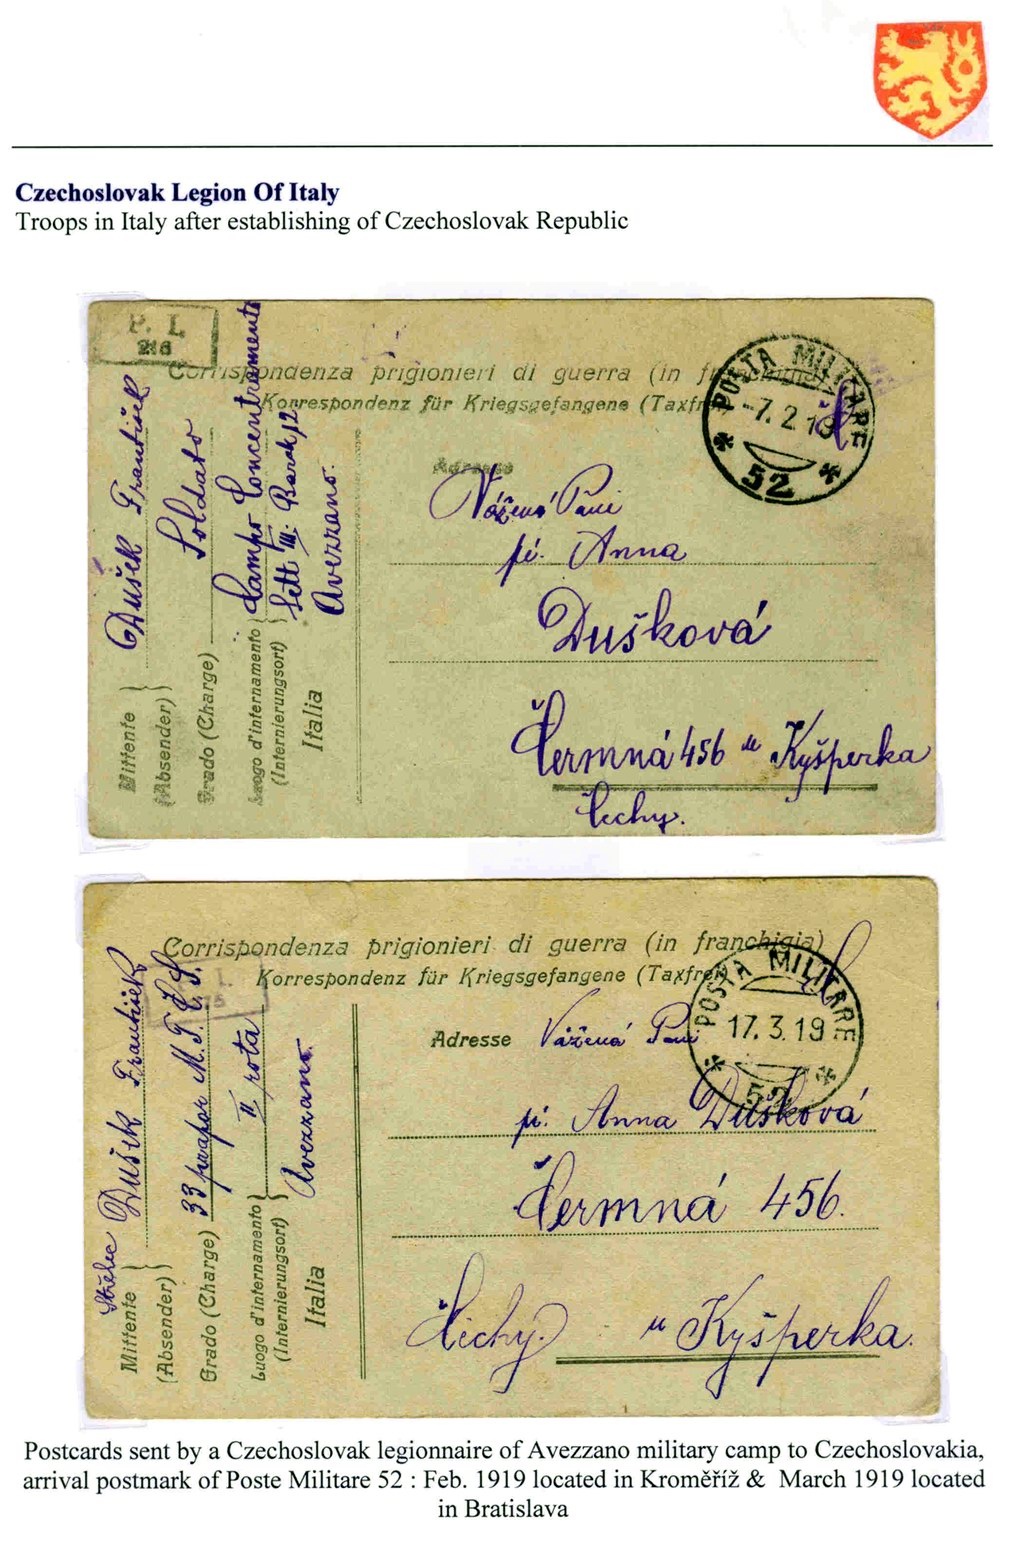 Czechoslovak Legion Of Italy
Troops in Italy after establishing of Czechoslovak Republic
P. I.
216
Corrispondenza prigionieri di guerra (in franchigia)
Korrespondenz für Kriegsgefangene (Taxfrei)
POSTA MILITARE
-7. 2 19
52
Adresse
Vážená Paní
pí. Anna
Dušková
Čermná 456 u Kyšperka
Čechy.
Mittente
(Absender)
Dušek František
Grado (Charge)
Soldato
Luogo d'internamento
(Internierungsort)
Campo Concentramento
Sett III. Barak 12
Avezzano.
Italia
Corrispondenza prigionieri di guerra (in franchigia)
Korrespondenz für Kriegsgefangene (Taxfrei)
POSTA MILITARE
17. 3. 19
52
Adresse Vážená Paní
pí. Anna Dušková
Čermná 456.
Čechy. u Kyšperka.
Střelec Dušek František
Mittente
(Absender)
Grado (Charge) 33 prapor
II rota
Luogo d'internamento
(Internierungsort)
Avezzano.
Italia
Postcards sent by a Czechoslovak legionnaire of Avezzano military camp to Czechoslovakia,
arrival postmark of Poste Militare 52 : Feb. 1919 located in Kroměříž & March 1919 located
in Bratislava